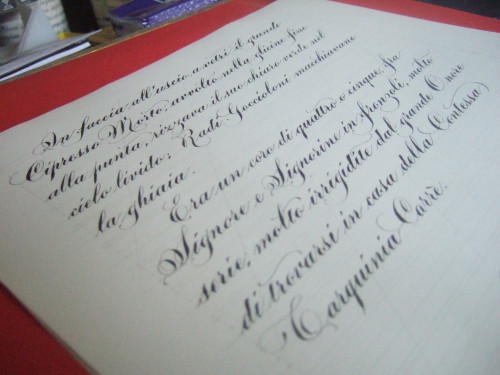 In faccia all'uscio a vetri il grande
Cipresso Morto, avvolto nella glicine fino
alla punta, rizzava il suo chiaro verde nel
cielo livido; Radi Goccioloni macchiavano
la ghiaia.
Era un coro di quattro o cinque, fra
Signore e Signorine in fronzoli, molto
serie, molto irrigidite dal grande Onore
di trovarsi in casa della Contessa
Tarquinia Carrè.